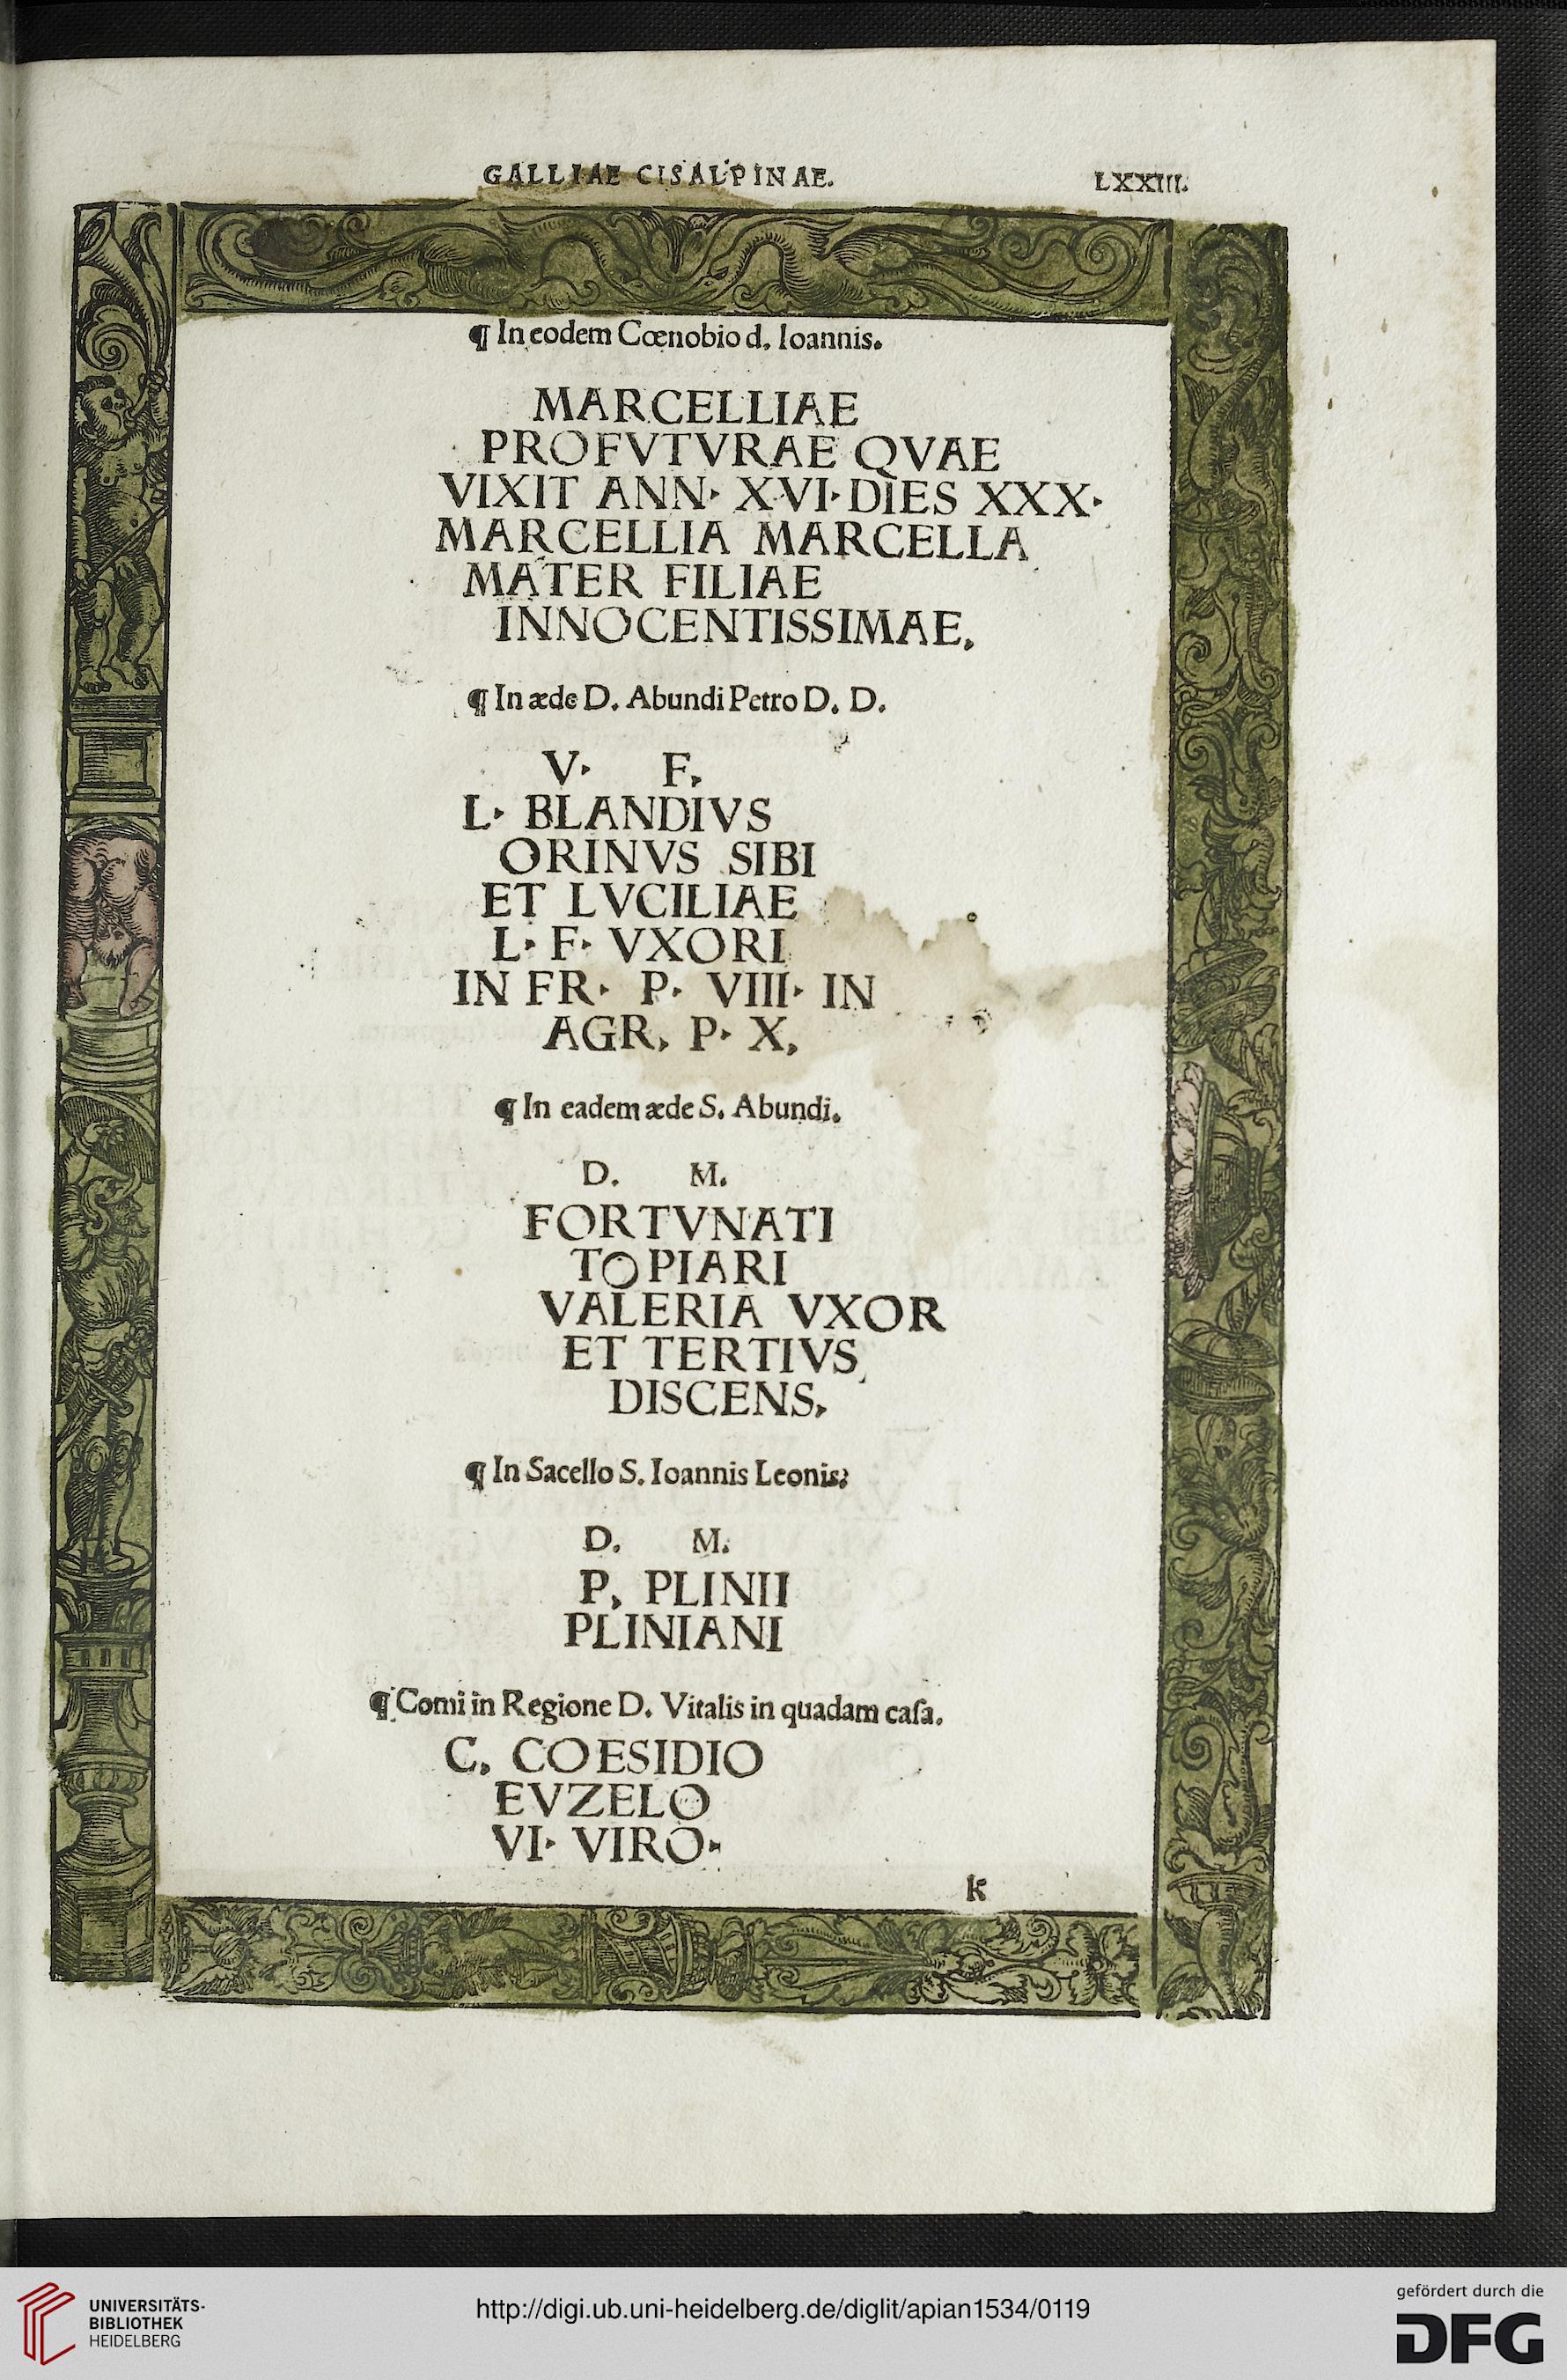 GALLIAE CISALPINAE. LXXIII.
¶ In eodem Cœnobio d. Ioannis.
MARCELLIAE
PROFVTVRAE QVAE
VIXIT ANN· XVI· DIES XXX·
MARCELLIA MARCELLA
MATER FILIAE
INNOCENTISSIMAE,
¶ In æde D. Abundi Petro D. D.
V· F,
L· BLANDIVS
ORINVS SIBI
ET LVCILIAE
L· F· VXORI
IN FR· P· VIII· IN
AGR, P· X,
¶ In eadem æde S. Abundi.
D. M.
FORTVNATI
TOPIARI
VALERIA VXOR
ET TERTIVS,
DISCENS,
¶ In Sacello S. Ioannis Leonis:
D. M.
P, PLINII
PLINIANI
¶ Comi in Regione D. Vitalis in quadam caſa.
C, COESIDIO
EVZELO
VI· VIRO·
k
UNIVERSITÄTS-
BIBLIOTHEK
HEIDELBERG
http://digi.ub.uni-heidelberg.de/diglit/apian1534/0119
gefördert durch die
DFG